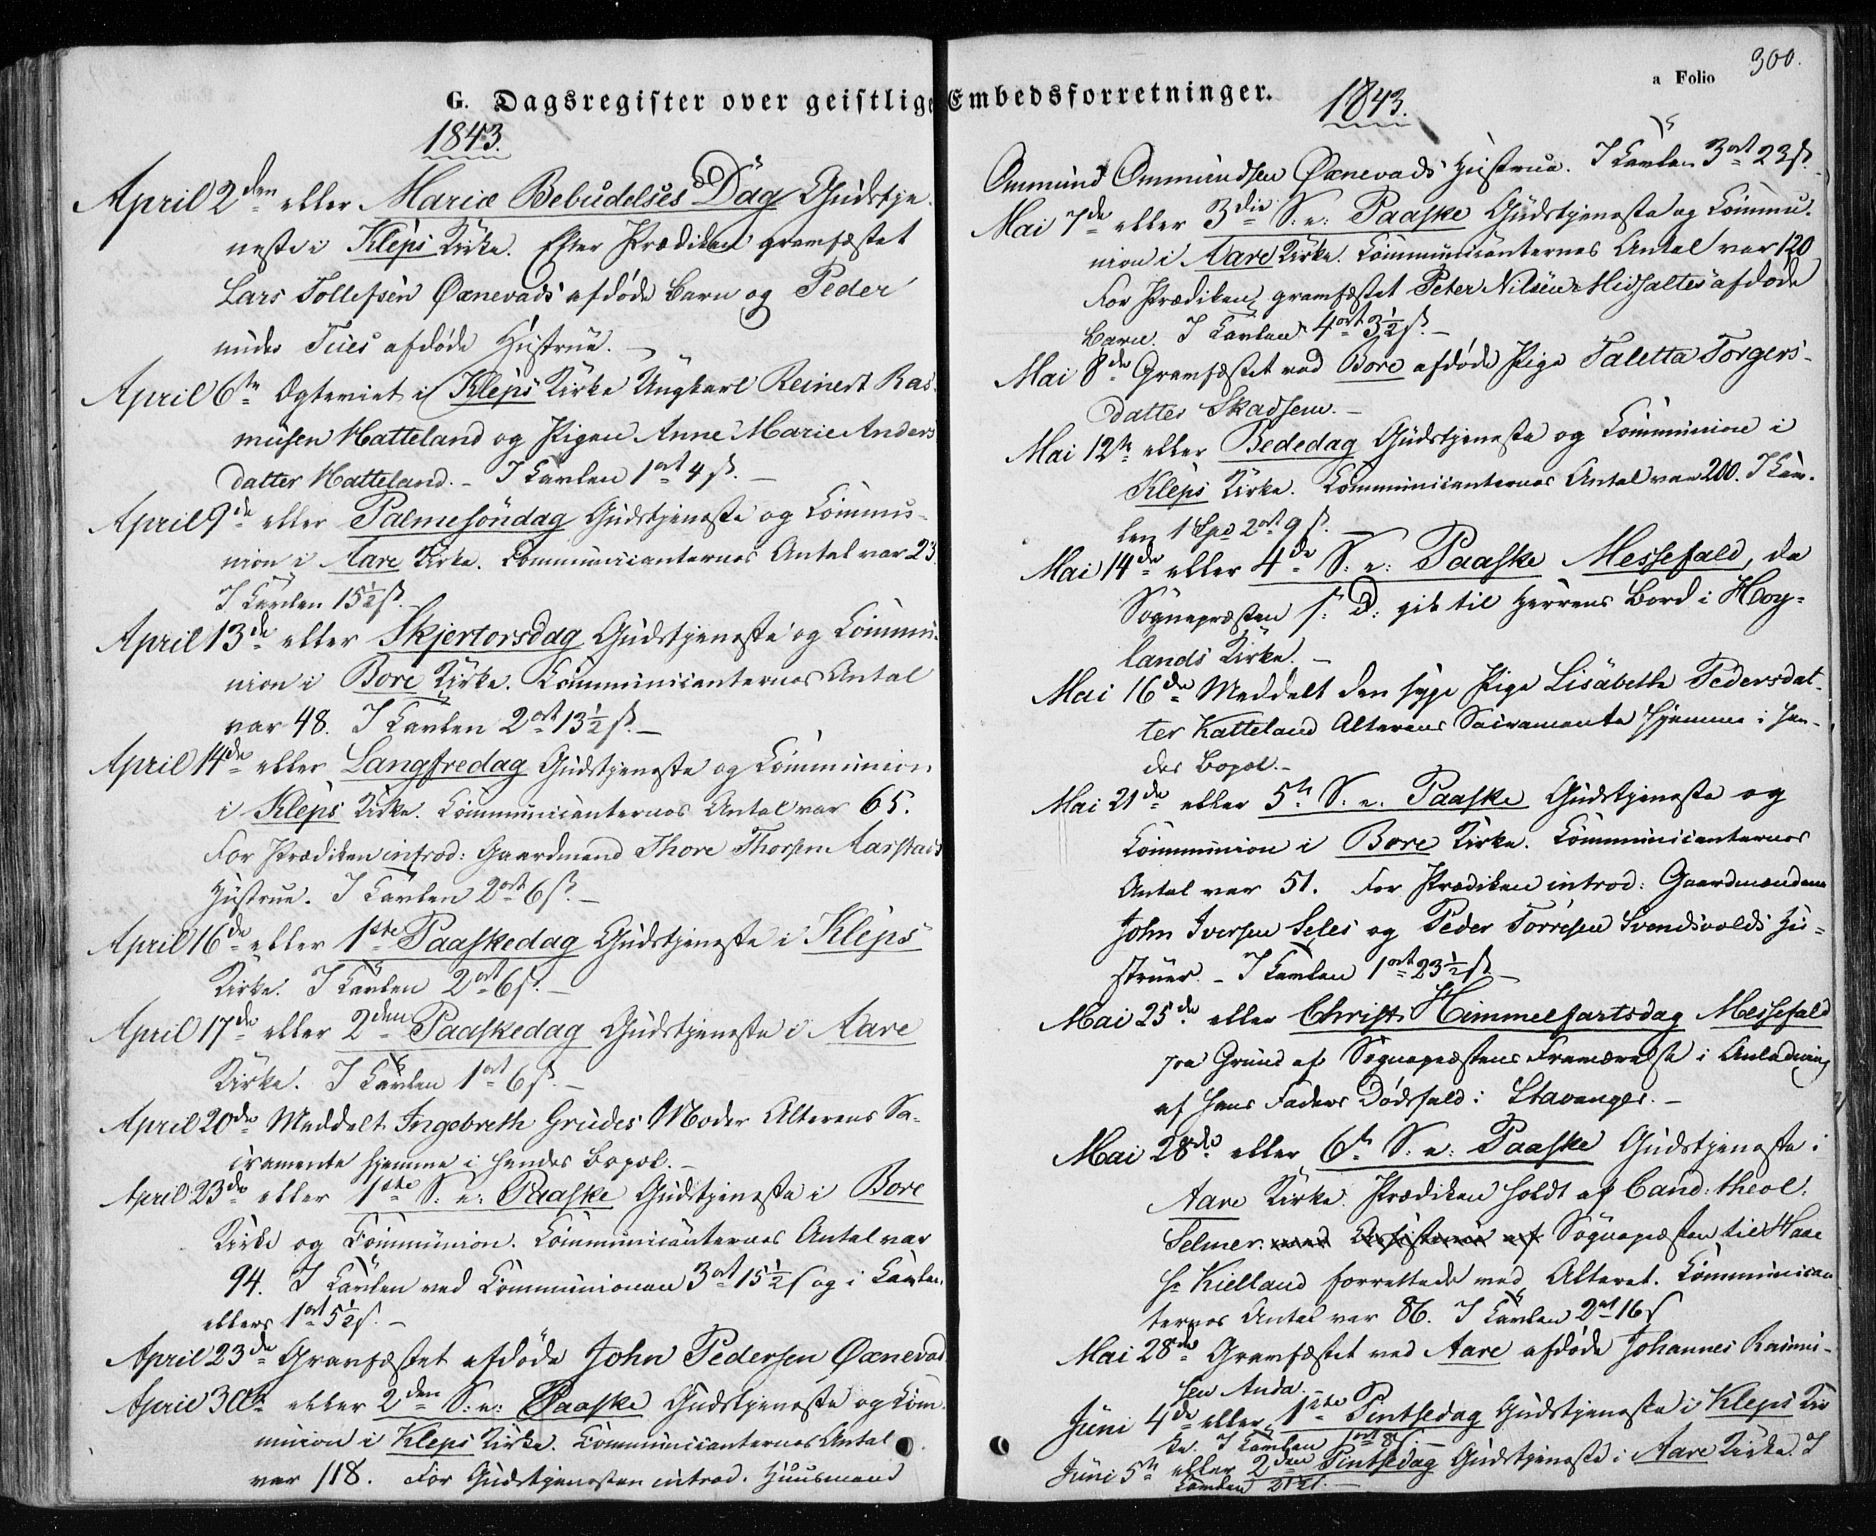 G. Dagsregister over geistlige Embedsforretninger.
a Folio 300.
1843.
April 2den eller Mariæ Bebudelses Dag Gudstje-
neste i Kleps Kirke. Efter Prædiken gravfæstet
Lars Tollefsen Øxnevads afdøde Barn og Peder
Tues afdøde Hustrue. –
April 6te Ægteviet i Kleps Kirke Ungkarl Reinert Ras-
musen Hatteland og Pigen Anne Marie Anders
datter Hatteland. – I Tavlen 1 ort 4 ß. –
April 9de eller Palmesöndag Gudstjeneste og Commu-
nion i Aare Kirke. Communicanternes Antal var 23
I Tavlen 15½ ß.
April 13de eller Skjertorsdag Gudstjeneste og Commu-
nion i Bore Kirke. Communicanternes Antal
var 48. I Tavlen 2 ort 13½ ß. –
April 14de eller Langfredag Gudstjeneste og Communion
i Kleps Kirke. Communicanternes Antal var 65.
For Prædiken introd: Gaardmand Thore Thorsen Aarstads
Hustrue. I Tavlen 2 ort 6 ß. –
April 16de eller 1ste Paaskedag Gudstjeneste i Kleps
Kirke. I Tavlen 2 ort 6 ß. –
April 17de eller 2den Paaskedag Gudstjeneste i Aare
Kirke. I Tavlen 1 ort 6 ß. –
April 20de Meddelt Ingebreth Grudes Moder Alterens Sa-
cramente hjemme i hendes Bopæl. –
April 23de eller 1ste S. e: Paaske Gudstjeneste i Bore
Kirke og Communion. Communicanternes Antal var
94. I Tavlen ved Communionen 3 ort 15½ ß og i Tavlen
ellers 1 ort 5½ ß. –
April 23de Gravfæstet afdøde John Pedersen Øxnevad
April 30te eller 2den S: e: Paaske Gudstjeneste og Com-
munion i Kleps Kirke. Communicanternes Antal
var 118. For Gudstjenesten introd. Huusmand
1843.
Ommund Ommundsen Øxnevads Hustrue. I Tavlen 3 ort 23 ß.
Mai 7de eller 3die S. e: Paaske Gudstjeneste og Commu-
nion i Aare Kirke. Communicanternes Antal var 120
For Prædiken gravfæstet Peter Nilsen Midsaltes afdøde
Barn. I Tavlen 4 ort 3½ ß. –
Mai 8de Gravfæstet ved Bore afdøde Pige Taletta Torgers-
datter Skadsem. –
Mai 12te eller Bededag Gudstjeneste og Communion i
Kleps Kirke. Communicanternes Antal var 200. I Tav-
len 1 Spd 2 ort 9 ß. –
Mai 14de eller 4de S: e: Paaske Messefald, da
Sognepræsten s: D: gik til Herrens Bord i Høy-
lands Kirke. –
Mai 16de Meddelt den syge Pige Lisabeth Pedersdat-
ter Hatteland Alterens Sacramente hjemme i hen-
des Bopæl. –
Mai 21de eller 5te S. e. Paaske Gudstjeneste og
Communion i Bore Kirke. Communicanternes
Antal var 51. For Prædiken introd: Gaardmændene
John Iversen Seles og Peder Torresen Svendsvolds Hu-
struer. – I Tavlen 1 ort 23½ ß –
Mai 25de eller Christi Himmelfartsdag Messefald
paa Grund af Sognepræstens Fraværelse i Anledning
af hans Faders Dödsfald i Stavanger. –
Mai 28de eller 6te S: e: Paaske Gudstjeneste i
Aare Kirke. Prædiken holdt af Cand. theol.
Selmer. med Assistence af Sognepræsten til Haae
Hr Kielland forrettede ved Alteret. Communican
ternes Antal var 86. I Tavlen 2 ort 16 ß
Mai 28de Gravfæstet ved Aare afdøde Johannes Rasmu-
sen Anda.
Juni 4de eller 1ste Pintsedag Gudstjeneste i Kleps Kir
ke. I Tavlen 1 ort 8 ß. –
Juni 5te eller 2den Pintsedag Gudstjeneste i Aare Kirke. I
Tavlen 21 ß. –